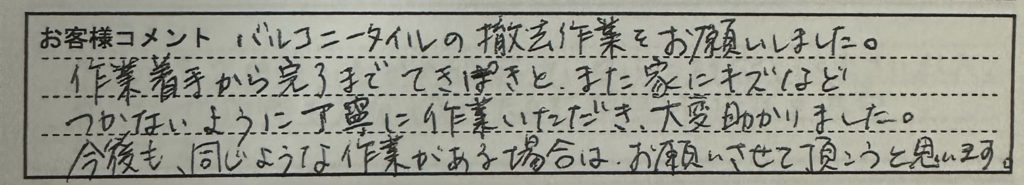 お客様コメント バルコニータイルの撤去作業をお願いしました。
作業着手から完了まで てきぱきと、また家にキズなど
つかないように丁寧に作業いただき、大変助かりました。
今後も、同じような作業がある場合は、お願いさせて頂こうと思います。